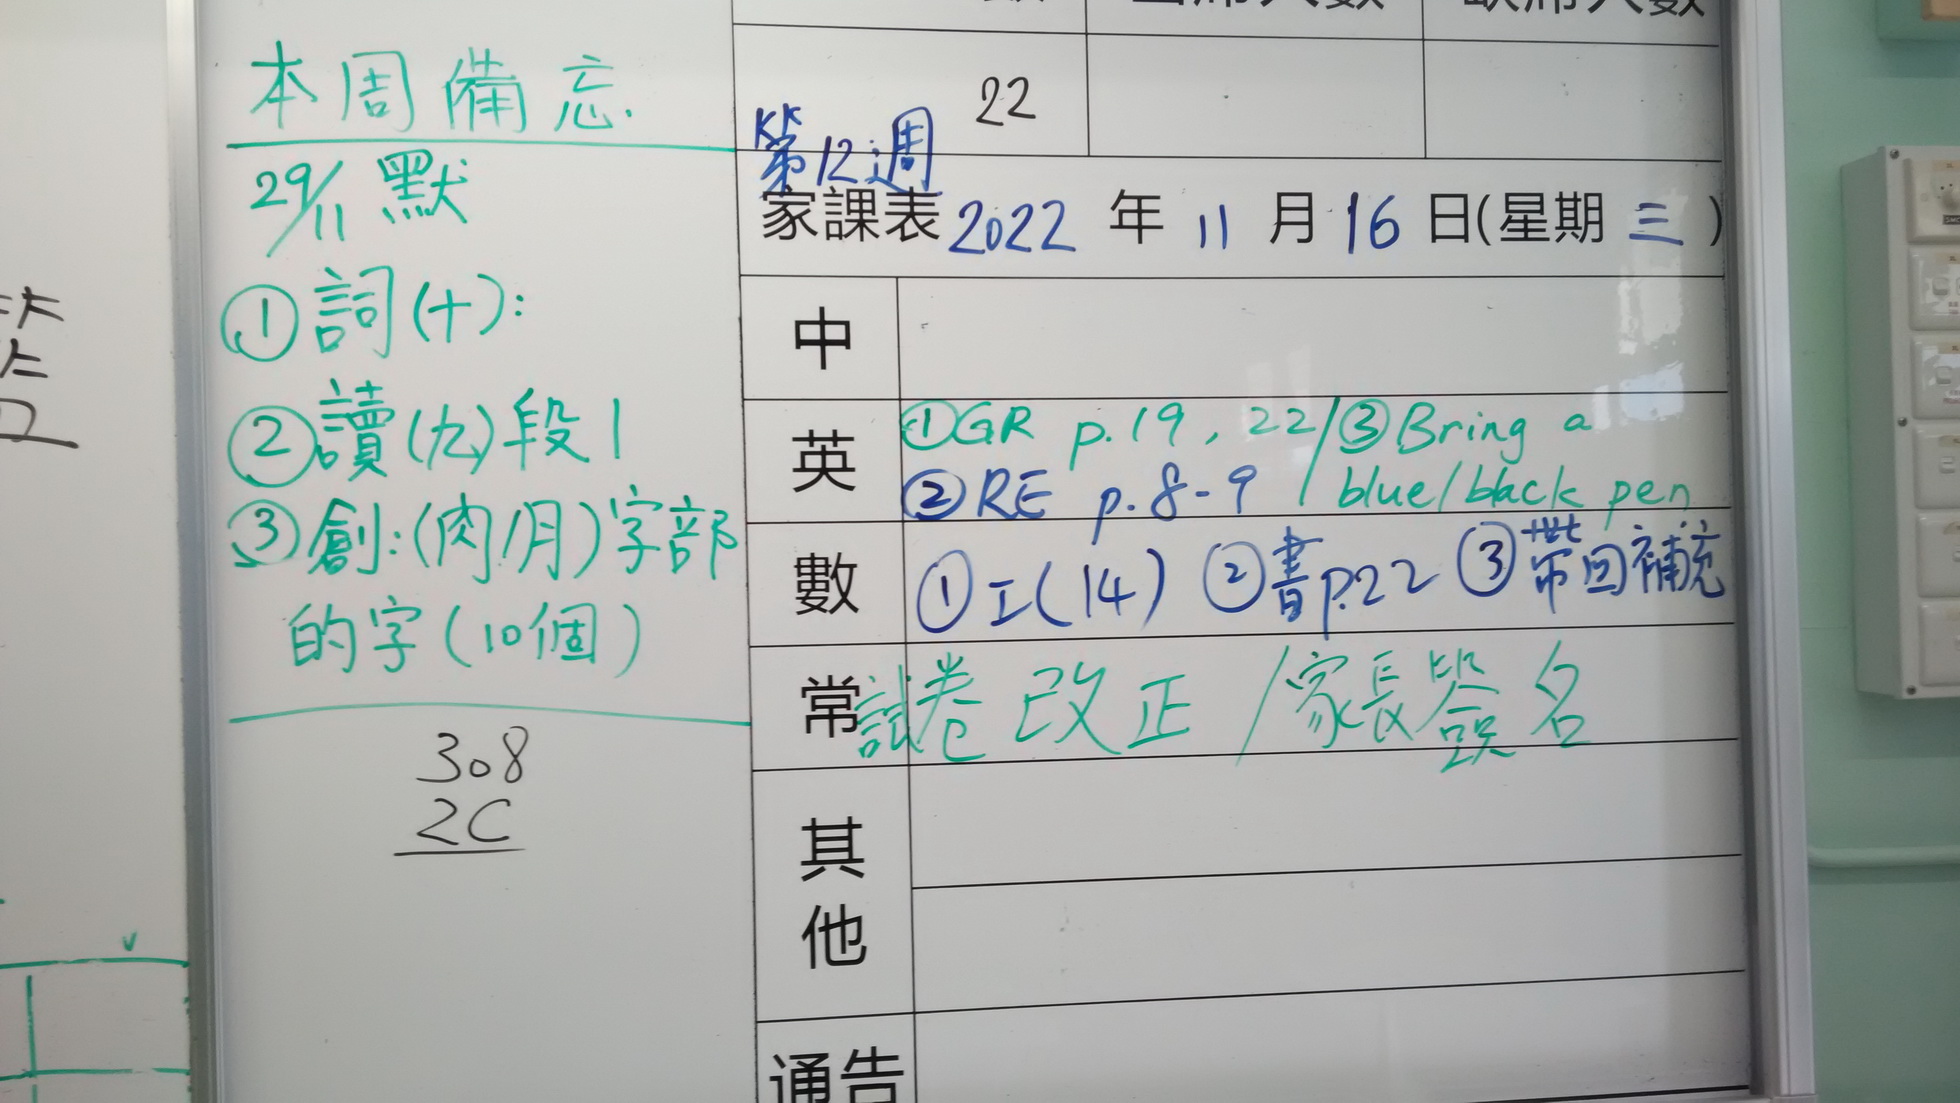 本周備忘.
29/11 默
①詞(十):
②讀(九)段1
③創:(肉/月)字部
的字(10個)
308
2C
出席人數 缺席人數
22
第12週
家課表 2022 年 11 月 16 日(星期 三 )
中
英
①GR p.19, 22/③Bring a
②RE p.8-9 / blue/black pen
數
①工(14) ②書p.22 ③帶回補充
常
試卷改正/家長簽名
其他
通告